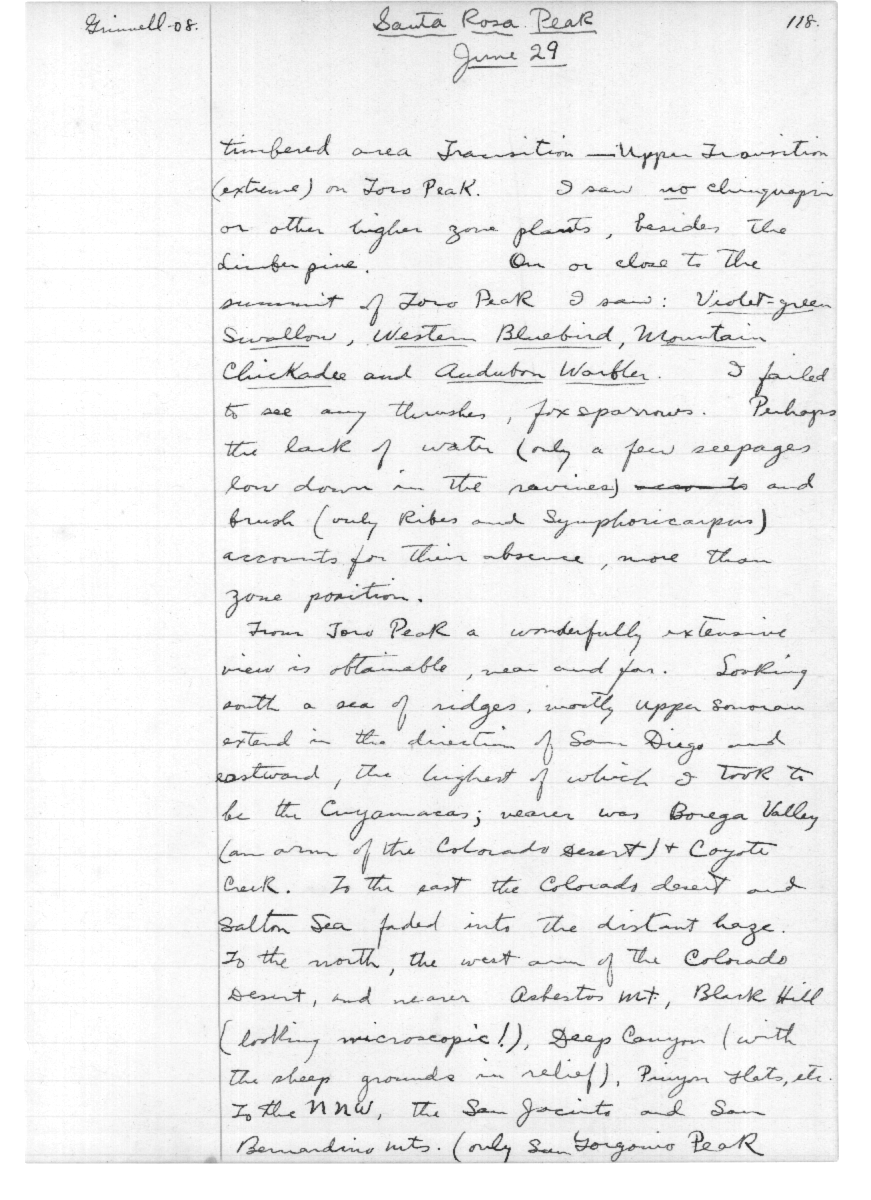 Grinnell-08.
Santa Rosa Peak
118.
June 29
timbered area Transition — Upper Transition
(extreme) on Toro Peak. I saw no chinquapin
or other higher zone plants, besides the
Limber pine. On or close to the
summit of Toro Peak I saw: Violet-green
Swallow, Western Bluebird, Mountain
Chickadee and Audubon Warbler. I failed
to see any thrushes, fox sparrows. Perhaps
the lack of water (only a few seepages
low down in the ravines) accounts and
brush (only Ribes and Symphoricarpus)
accounts for their absence, more than
zone position.
From Toro Peak a wonderfully extensive
view is obtainable, near and far. Looking
south a sea of ridges, mostly Upper Sonoran
extend in the direction of San Diego and
eastward, the highest of which I took to
be the Cuyamacas; nearer was Borega Valley
(an arm of the Colorado Desert) + Coyote
Creek. To the east the Colorado desert and
Salton Sea faded into the distant haze.
To the north, the west arm of the Colorado
Desert, and nearer Asbestos Mt., Black Hill
(looking microscopic!), Deep Canyon (with
the sheep grounds in relief), Pinyon Flats, etc.
To the NNW, the San Jacinto and San
Bernardino Mts. (only San Gorgonio Peak